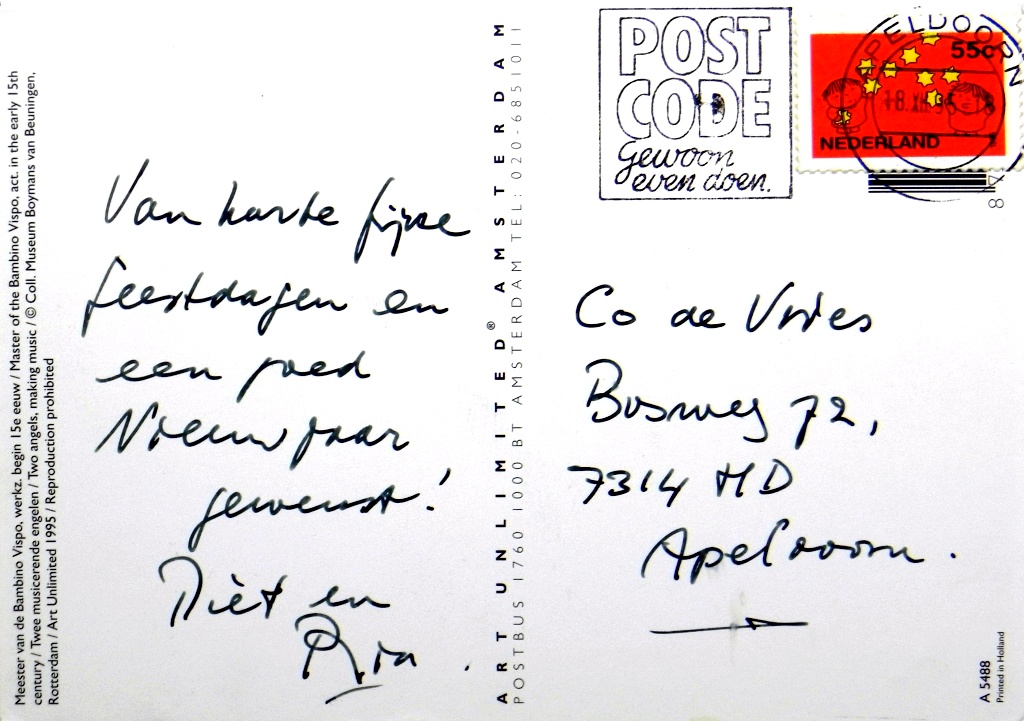 Meester van de Bambino Vispo, werkz. begin 15e eeuw / Master of the Bambino Vispo, act. in the early 15th
century / Twee musicerende engelen / Two angels, making music / © Coll. Museum Boymans van Beuningen,
Rotterdam / Art Unlimited 1995 / Reproduction prohibited
Van harte fijne
feestdagen en
een goed
Nieuwjaar
gewenst!
Diet en
Ria.
ART UNLIMITED® AMSTERDAM
POSTBUS 1760 1000 BT AMSTERDAM TEL: 020-6851011
POST
CODE
gewoon
even doen.
APELDOORN
55c
18.XII.95-18
NEDERLAND
8
Co de Vries
Bosweg 72,
7314 HD
Apeldoorn.
A 5488
Printed in Holland